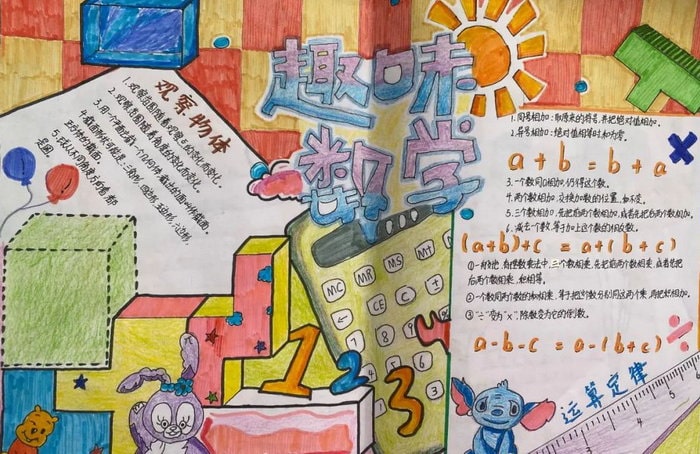 趣味
数学
观察物体
1. 观察范围随着观察点的变化而变化。
2. 观察范围随着角度的变化而变化。
3. 用一个平面截一个几何体,截出的面叫作截面。
正方体的截面:
5. 从不同角度方向看 都
是圆。
1. 同号相加:取原来的符号,并把绝对值相加。
2. 异号相加:绝对值相等时和为零。
a+b=b+a
3. 一个数同0相加,仍得这个数。
4. 两个数相加,交换加数的位置,和不变。
5. 三个数相加,先把前两个数相加,或者先把后两个数相加,
6. 减去一个数,等于加上这个数的相反数。
(a+b)+c=a+(b+c)
①一般地,有理数乘法中,三个数相乘,先把前两个数相乘,或者先把
后两个数相乘,积相等。
②一个数同两个数的和相乘,等于把这个数分别同这两个数相乘,再把积相加。
③"÷"变为"×",除数变为它的倒数。
a-b-c=a-(b+c)
运算定律
MC MR MS M+
CE C ±
1 2 3